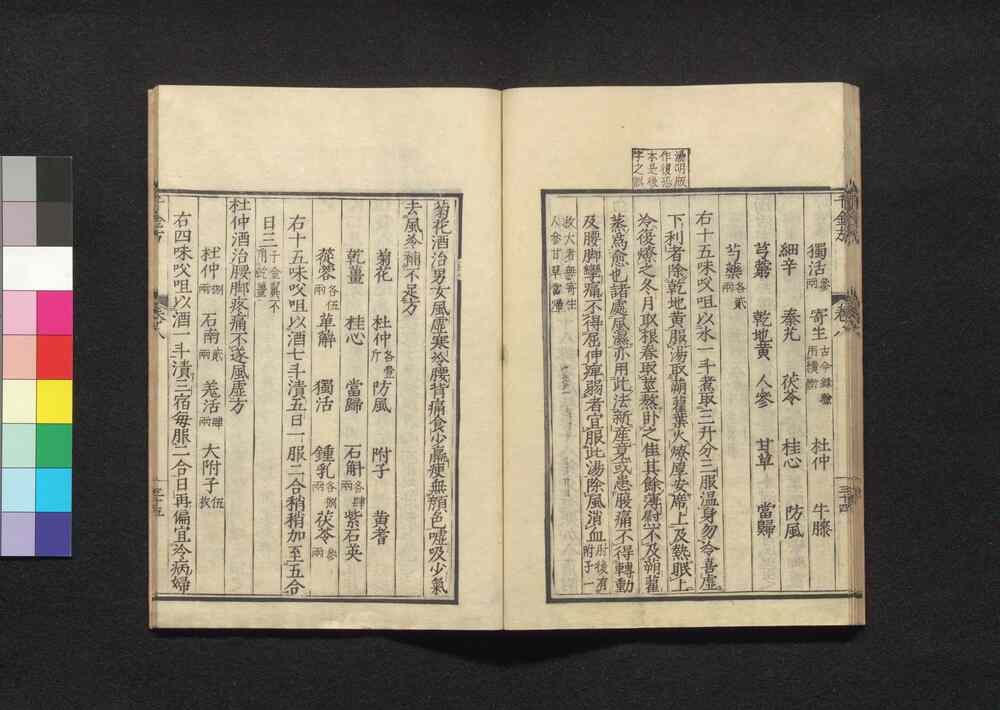 千金方
卷八
三十四
獨活叁兩 寄生古今錄驗用續斷 杜仲 牛膝
細辛 秦艽 茯苓 桂心 防風
芎藭 乾地黄 人參 甘草 當歸
芍藥各貳兩
右十五味㕮咀以水一斗煮取三升分三服温身勿冷喜虚
下利者除乾地黄服湯取蒴藋葉火燎厚安席上及熱眠上
冷復燎之冬月取根春取莖熬卧之佳其餘薄熨不及蒴藋
蒸爲愈也諸處風濕亦用此法新産竟或患腹痛不得轉動
及腰脚攣痛不得屈伸痺弱者宜服此湯除風消血肘後有附子一
枚大者無寄生
人參甘草當歸
復明版
作復恐
本是後
字之誤
菊花酒治男女風虚寒冷腰背痛食少羸瘦無顔色嘘吸少氣
去風冷補不足方
菊花 杜仲各壹斤 防風 附子 黄耆
乾薑 桂心 當歸 石斛各肆兩 紫石英
蓯蓉各伍兩 萆薢 獨活 鍾乳各捌兩 茯苓叁兩
右十五味㕮咀以酒七斗漬五日一服二合稍稍加至五合
日三千金翼不用乾薑
杜仲酒治腰脚疼痛不遂風虚方
杜仲捌兩 石南貳兩 羗活肆兩 大附子伍枚
右四味㕮咀以酒一斗漬三宿毎服二合日再偏宜冷病婦
千金方
卷八
三十五